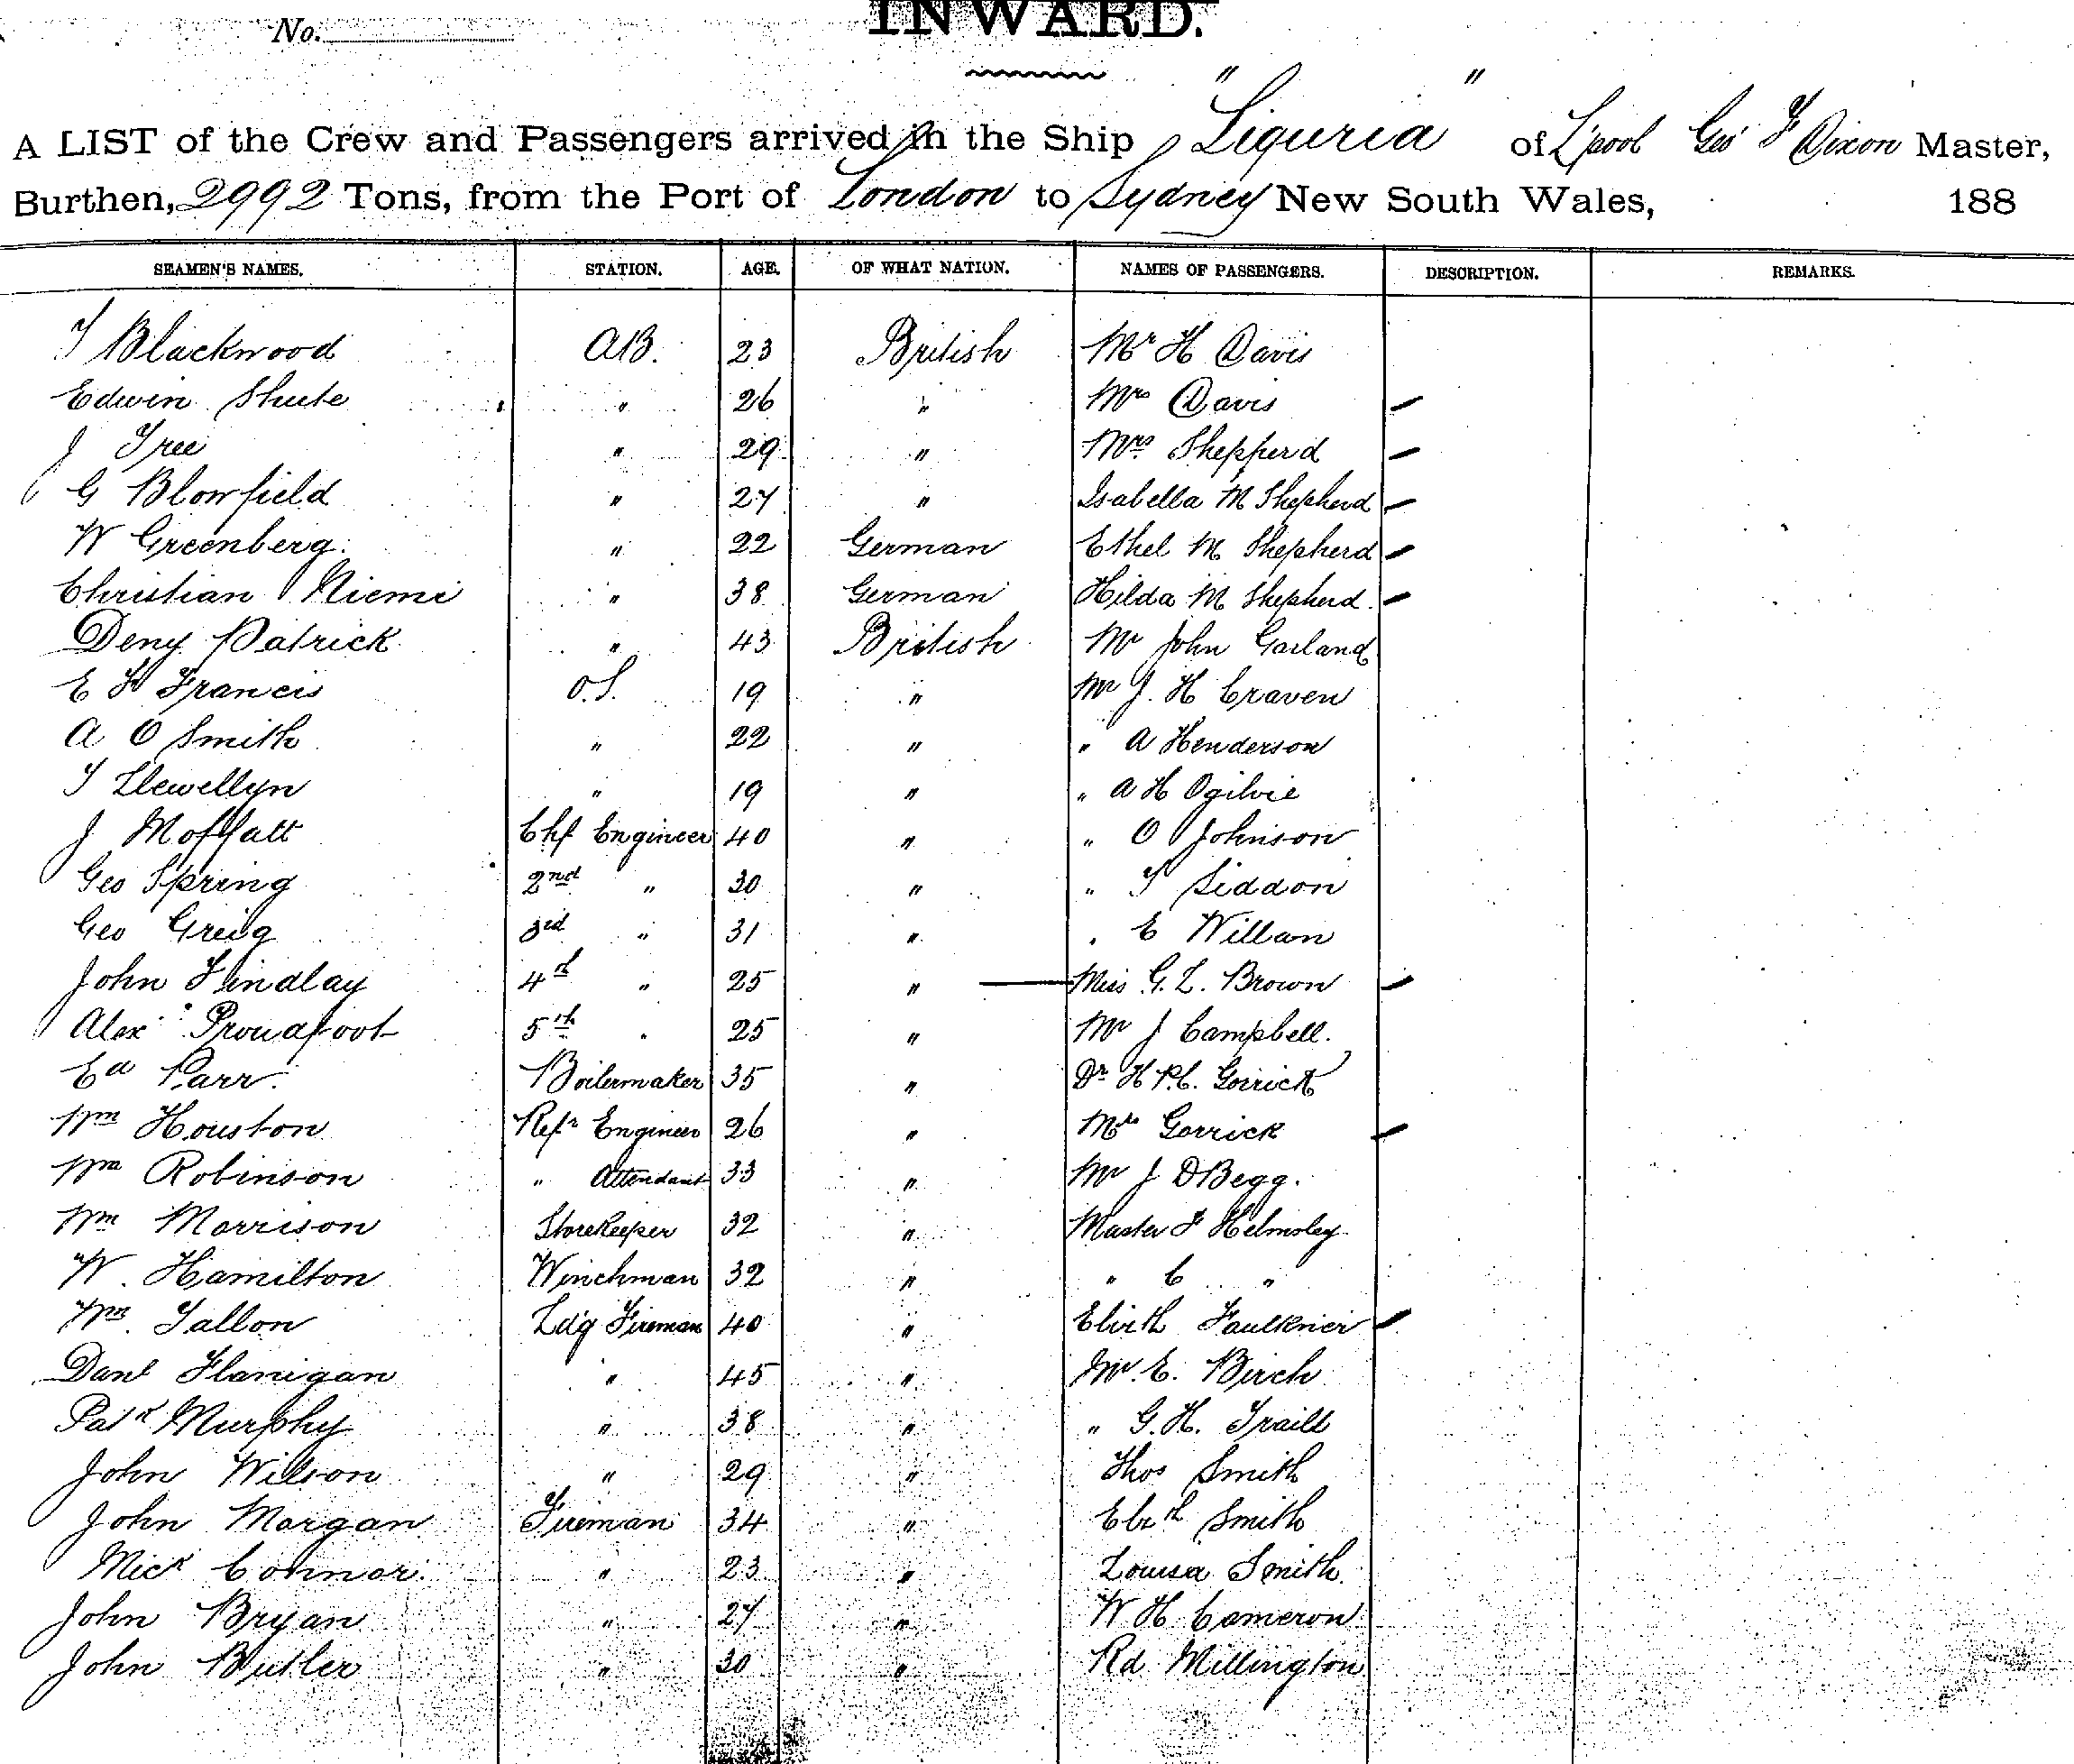 No.
INWARD.
A LIST of the Crew and Passengers arrived in the Ship "Liguria" of L'pool Geo F Dixon Master,
Burthen, 2992 Tons, from the Port of London to Sydney New South Wales, 188
SEAMEN'S NAMES. STATION. AGE. OF WHAT NATION. NAMES OF PASSENGERS. DESCRIPTION. REMARKS.
T Blackwood AB. 23 British Mr H Davis
Edwin Shute " 26 " Mrs Davis
J Tree " 29 " Mrs Shepperd
G Blowfield " 27 " Isabella M Shepherd
W Greenberg. " 22 German Ethel M Shepherd
Christian Niemi " 38 German Hilda M Shepherd.
Deny Patrick " 43 British Mr John Garland
E H Francis O.S. 19 " Mr J. H Craven
A O Smith " 22 " " A Henderson
T Llewellyn " 19 " " A H Ogilvie
J Moffatt Chf Engineer 40 " " O Johnson
Geo Spring 2nd " 30 " " T Siddon
Geo Greig 3rd " 31 " " E Willan
John Findlay 4th " 25 " Miss G. L. Brown
Alex Proudfoot 5th " 25 " Mr J Campbell.
Ed Parr. Boilermaker 35 " Dr H P.C. Gorrick
Wm Houston Refr Engineer 26 " Mrs Gorrick
Wm Robinson " Attendant 33 " Mr J D Begg.
Wm Morrison Storekeeper 32 " Master F Helmsley
W. Hamilton Winchman 32 " " C "
Wm. Tallon Ldg Fireman 40 " Elizth Faulkner
Danl Flanigan " 45 " Mr. E. Birch
Patk Murphy " 38 " " G. H. Traill
John Wilson " 29 " Thos Smith
John Morgan Fireman 34 " Elzth Smith
Mick Connor. " 23 " Louisa Smith.
John Bryan " 27 " W H Cameron
John Butler " 30 " Rd Millington